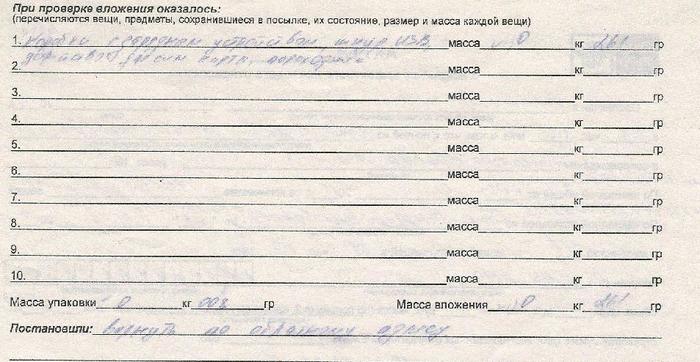 При проверке вложения оказалось:
(перечисляются вещи, предметы, сохранившиеся в посылке, их состояние, размер и масса каждой вещи)
1. Коробка с зарядным устройством, шнур USB, масса 0 кг 261 гр
2. масса кг гр
3. масса кг гр
4. масса кг гр
5. масса кг гр
6. масса кг гр
7. масса кг гр
8. масса кг гр
9. масса кг гр
10. масса кг гр
Масса упаковки 0 кг 008 гр Масса вложения 0 кг 261 гр
Постановили: вернуть по обратному адресу